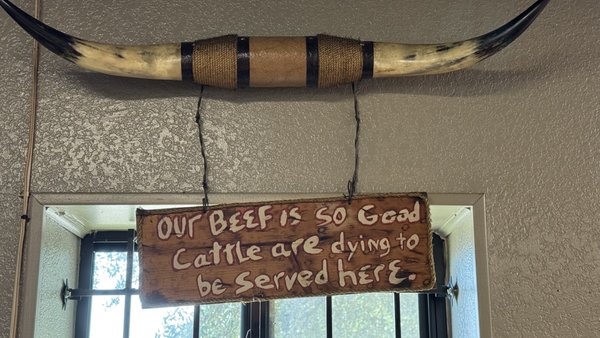 OUR BEEF is SO GOOD
CattLe aRe dying to
be seRved heRe.